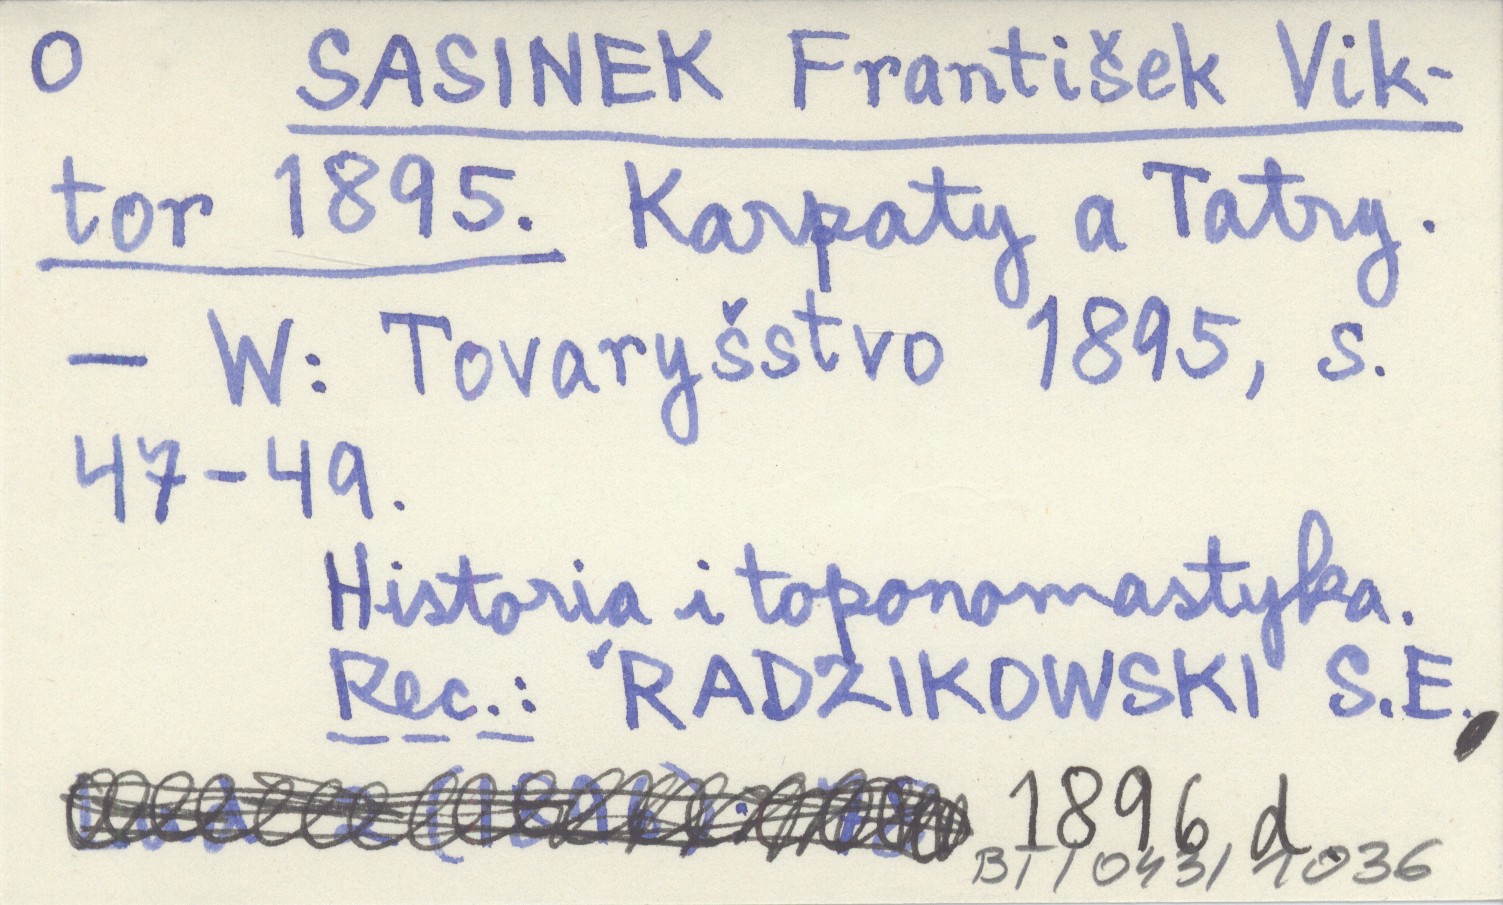 O SASINEK František Vik-
tor 1895. Karpaty a Tatry.
— W: Tovaryšstvo 1895, s.
47-49.
Historia i toponomastyka.
Rec.: RADZIKOWSKI S.E.,
1896 d.
B1/1043/1036